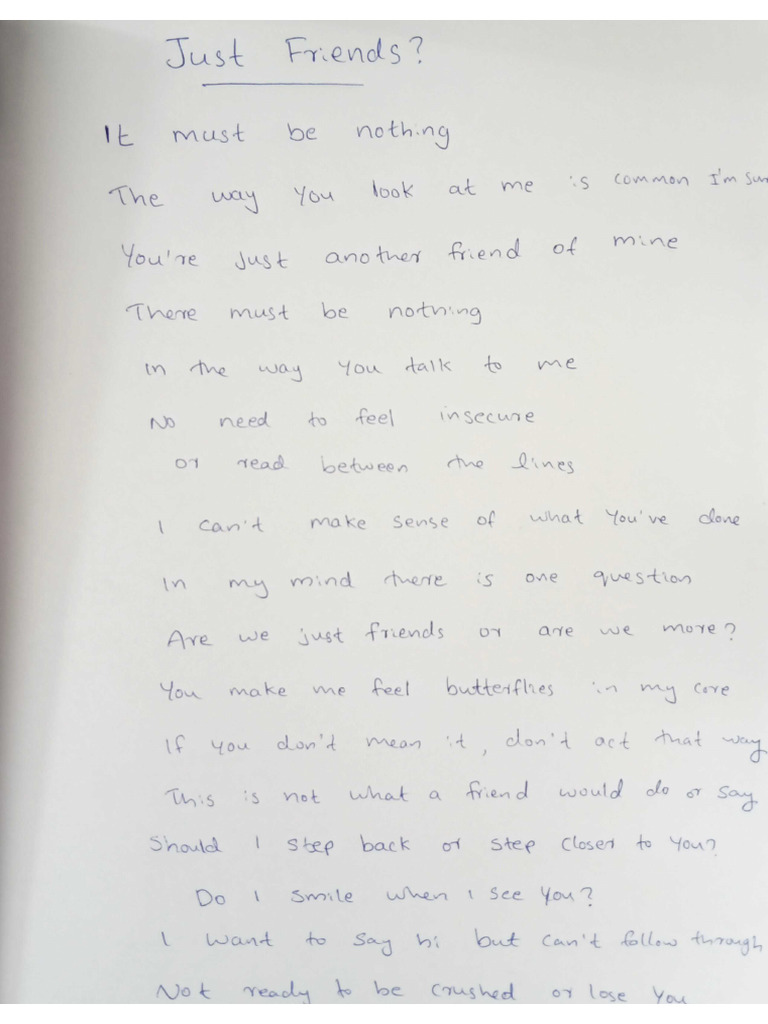 Just Friends?
It must be nothing
The way you look at me is common I'm sur
You're just another friend of mine
There must be nothing
In the way you talk to me
No need to feel insecure
or read between the lines
I can't make sense of what you've done
In my mind there is one question
Are we just friends or are we more?
You make me feel butterflies in my core
If you don't mean it, don't act that way
This is not what a friend would do or say
Should I step back or step closer to you?
Do I smile when I see you?
I want to say hi but can't follow through
Not ready to be crushed or lose you